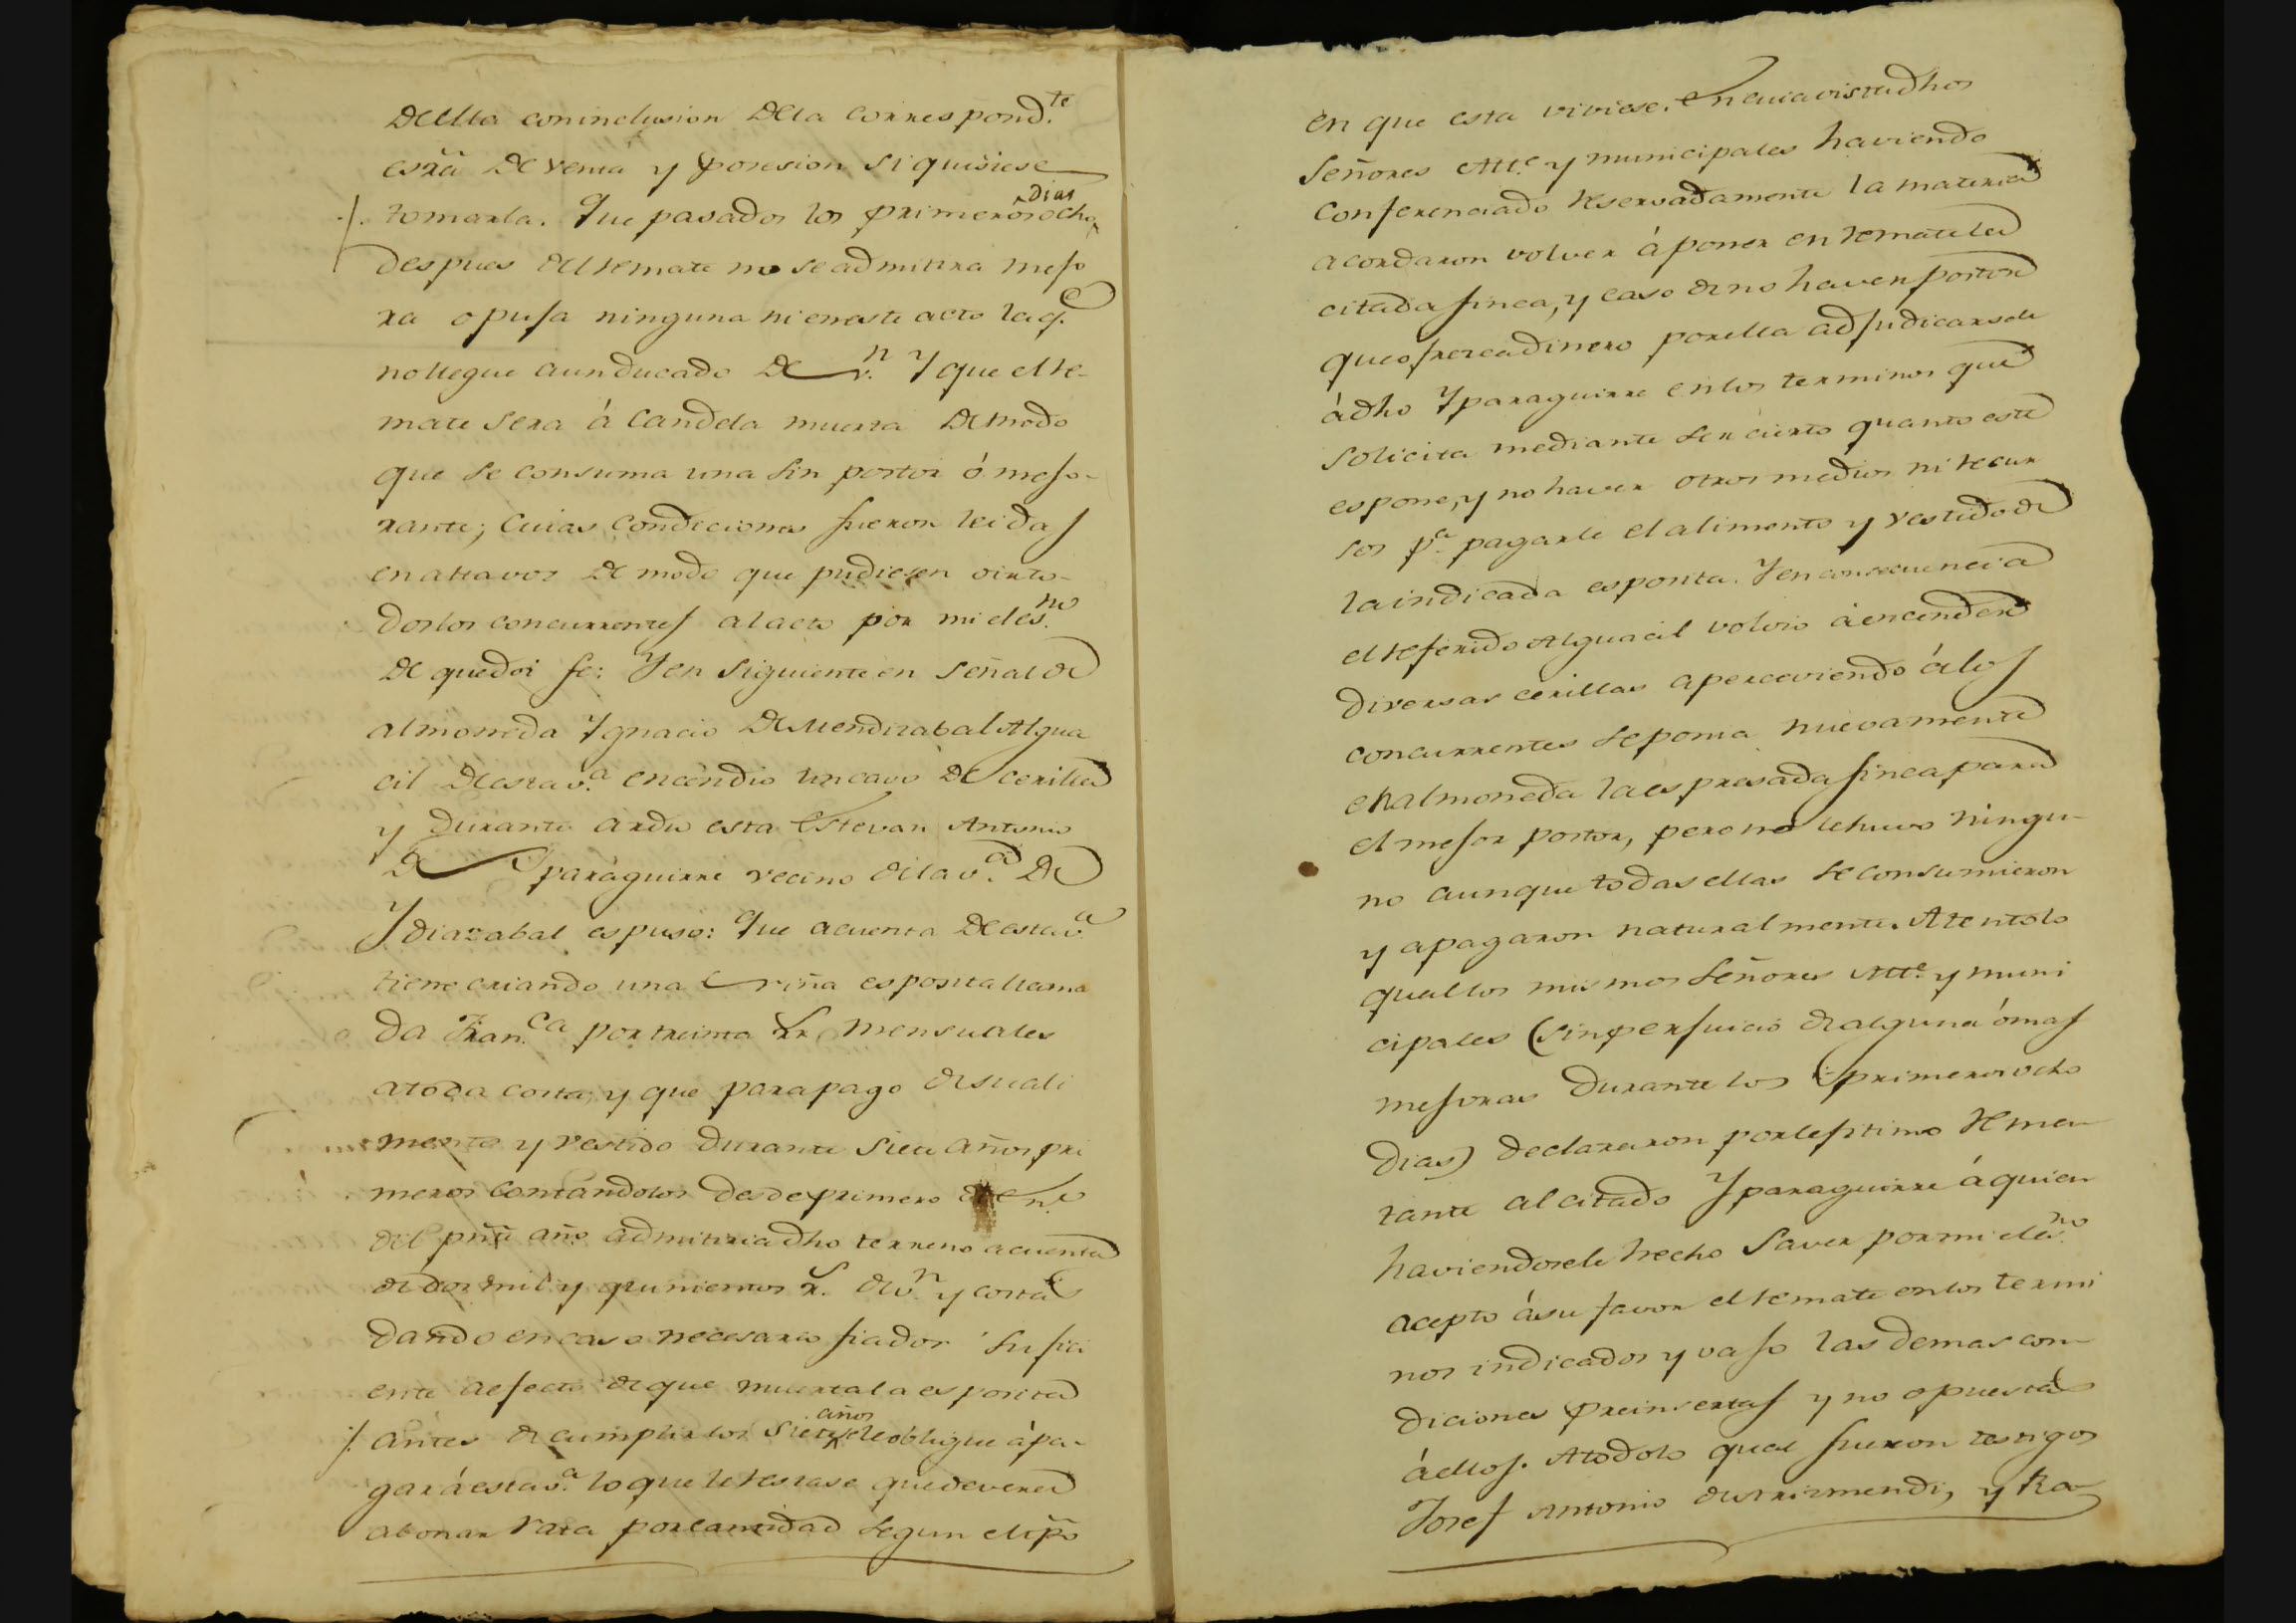 de ella coninclusion dela correspond.te
esrã de venta y posesion si quisiese
tomarla. Que pasados los primeros ocho dias
despues del remate no se admitira mejo
ra o puja ninguna ni en este acto la q.e
no llegue aun ducado de v.n Y que el re-
mate sera á candela muerta de modo
que se consuma una sin postor ó mejo-
rante; cuias condiciones fueron leidas
en alta vos de modo que pudiesen oir to-
dos los concurrentes al acto por mi el es.no
de que doi fe: Y en siguiente en señal de
almoneda Ygnacio de Mendizabal Algua
cil de esta v.a encendio un cavo de cerilla
y durante ardio esta Estevan Antonio
de Yparaguirre vecino de la v.a de
Ydiazabal espuso: Que a cuenta de esta v.a
tiene criando una niña esposita llama
da Fran.ca por treinta rr.s mensuales
a toda costa, y que para pago de su ali
mento y vestido durante siete años pri
meros contandolos desde primero de En.o
del pñte año admitiria dho terreno a cuenta
de dos mil y quinientos r.s de v.n y costas
dando en caso necesario fiador sufici
ente a efecto de que muerta la esposita
antes de cumplir los siete años se le obligue á pa-
gar á esta v.a lo que le restase que devera
abonar rata por cantidad segun el tp̃o
en que esta viviese. En cuia vista dhos
Señores Alc.e y municipales haviendo
conferenciado reservadamente la materia
acordaron volver á poner en remate la
citada finca, y caso de no haver postor
que ofrezca dinero por ella adjudicarsele
á dho Yparaguirre en los terminos que
solicita mediante ser cierto quanto este
espone, y no haver otros medios ni recur
sos p.a pagarle el alimento y vestido de
la indicada esposita. Y en consecuencia
el referido Alguacil volvio á encender
diversas cerillas aperceviendo á los
concurrentes se ponia nuevamente
en almoneda la espresada finca para
el mejor postor, pero no le huvo ningu-
no aunque todas ellas se consumieron
y apagaron naturalmente. Atento lo
qual los mismos Señores Alc.e y muni
cipales (sin perjuicio de alguna ó mas
mejoras durante los primeros ocho
dias) declararon por lejitimo rema-
tante al citado Yparaguirre á quien
haviendosele hecho saver por mi el es.no
acepto á su favor el remate en los termi
nos indicados y vajo las demas con-
diciones preinsertas y no opuestas
á ellos. A todo lo qual fueron testigos
Josef Antonio de Arizmendi, y Ra-